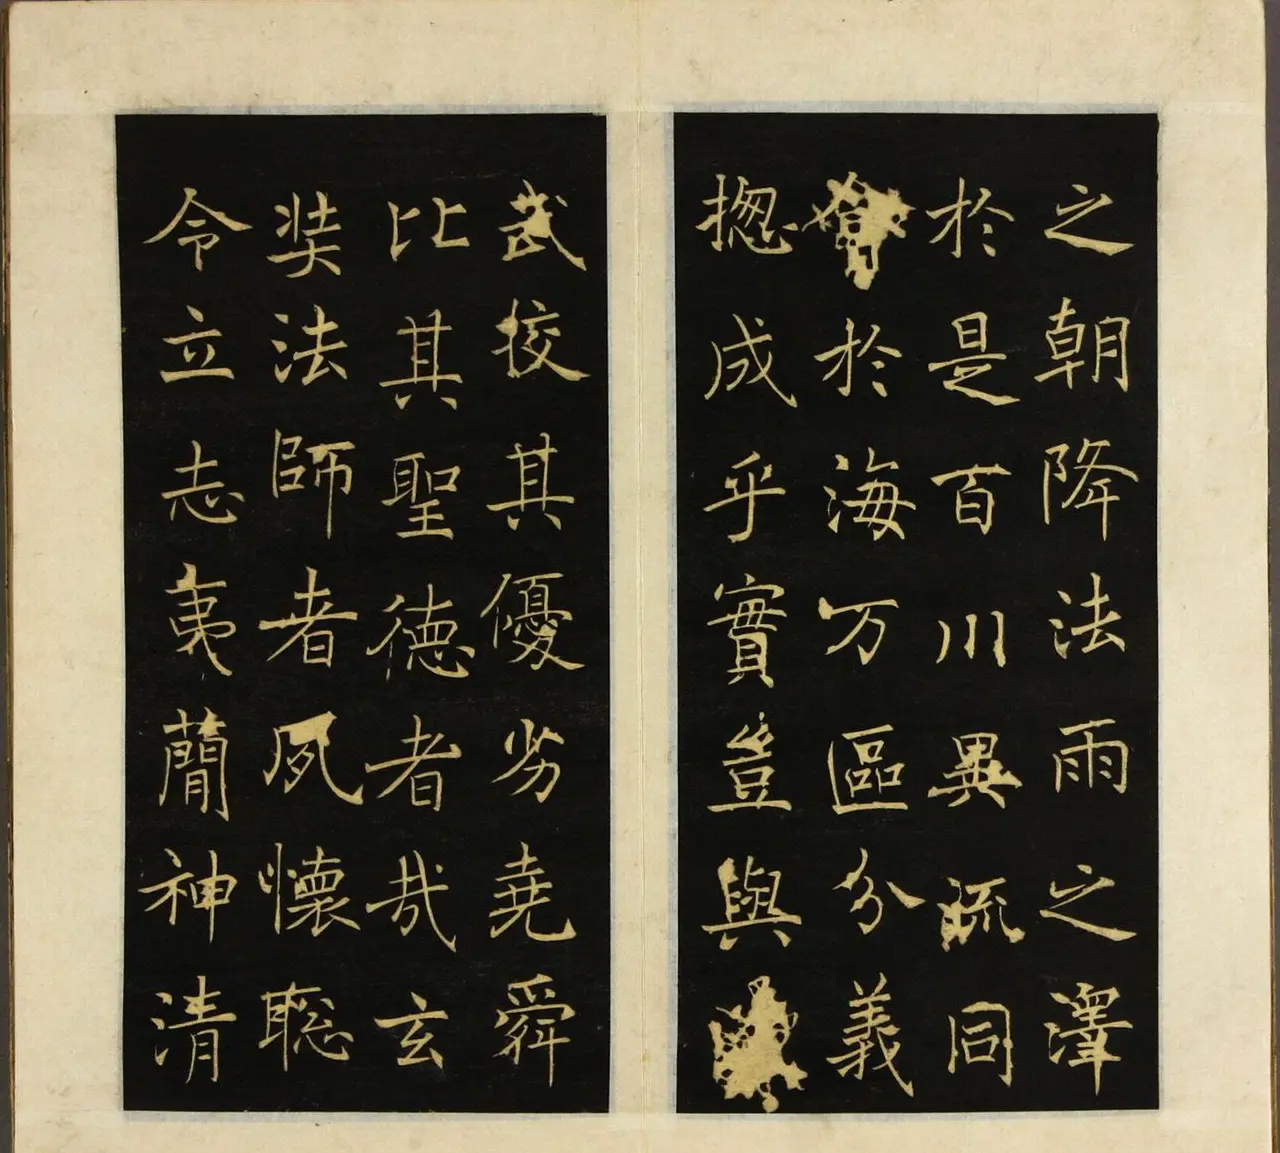 之朝降法雨之澤
於是百川異流同
會於海万區分義
揔成乎實豈與
武挍其優劣堯舜
比其聖德者哉玄
奘法師者夙懷聦
令立志夷蕳神清